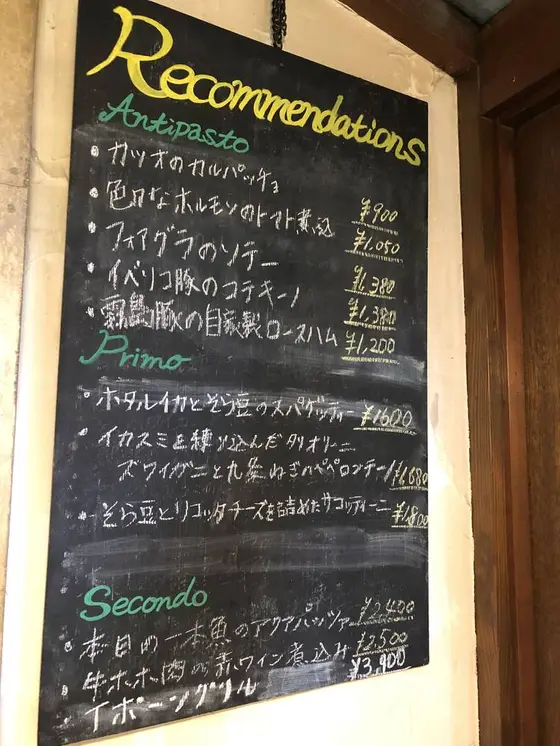 Recommendations
Antipasto
・カツオのカルパッチョ ¥900
・色々なホルモンのトマト煮込 ¥1,050
・フォアグラのソテー ¥1,380
・イベリコ豚のコテキーノ ¥1,380
・霧島豚の自家製ロースハム ¥1,200
Primo
・ホタルイカとそら豆のスパゲッティー ¥1600
・イカスミを練り込んだタリオリーニ
ズワイガニと九条ねぎのペペロンチーノ ¥1,680
・そら豆とリコッタチーズを詰めたサコッティーニ ¥1,800
Secondo
・本日の一本魚のアクアパッツァ ¥2,400
・牛ホホ肉の赤ワイン煮込み ¥2,500
・Tボーングリル ¥3,900